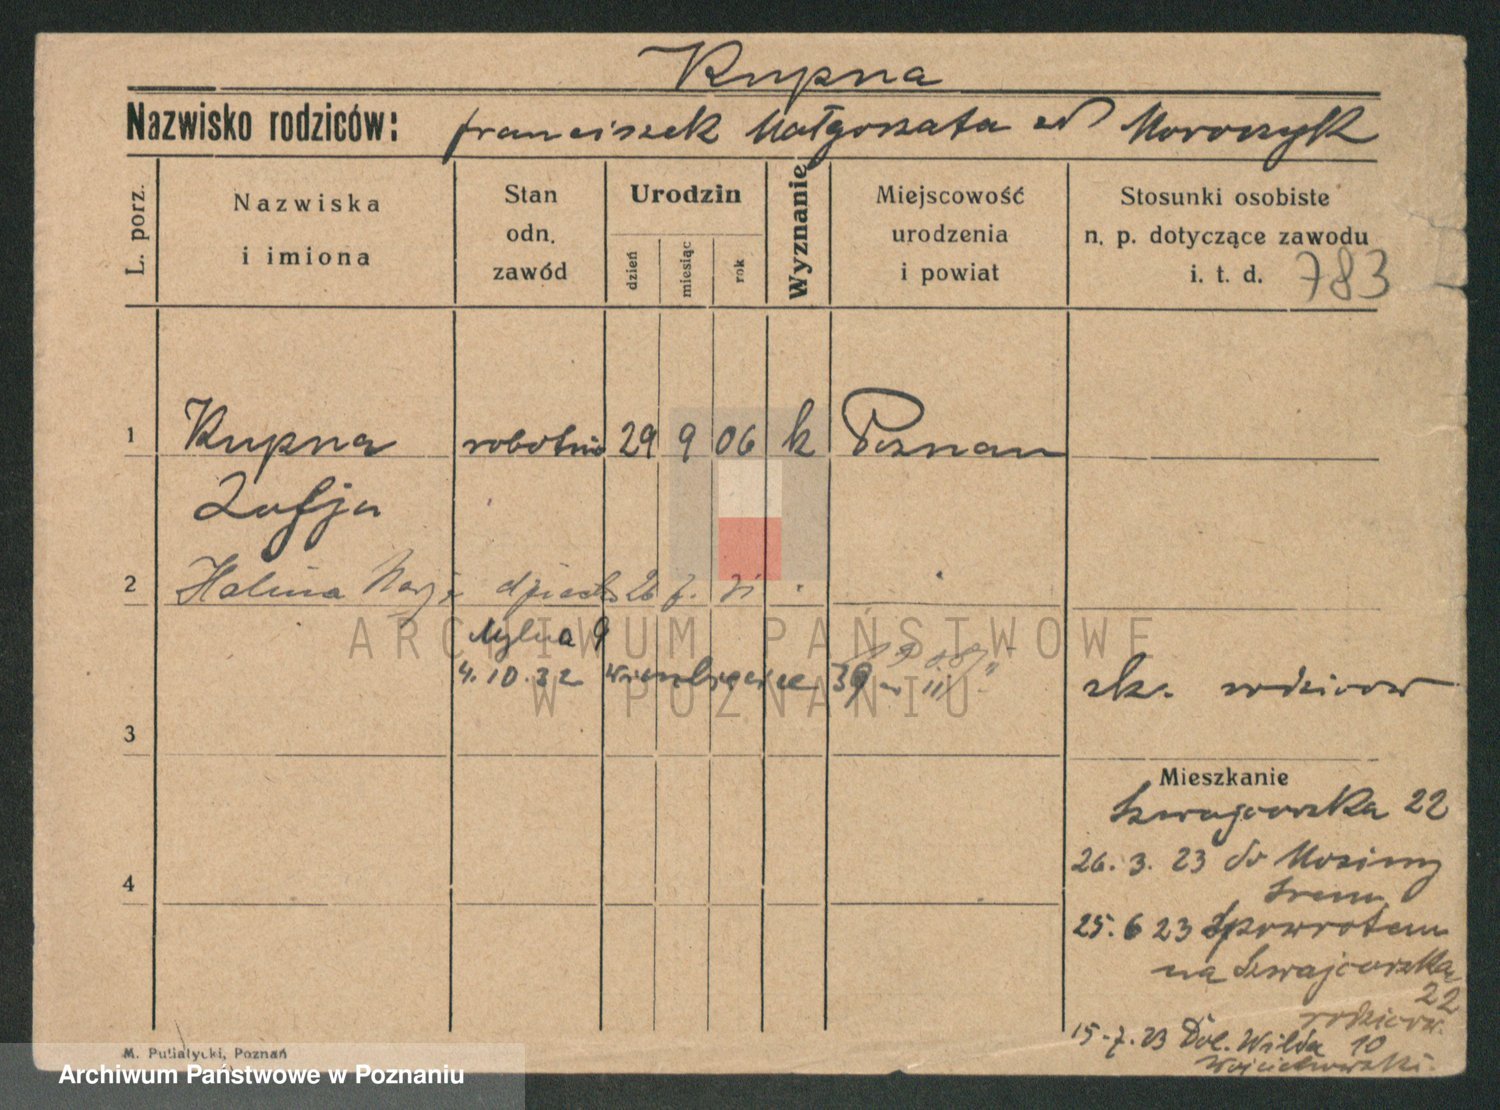 Kupna
Nazwisko rodziców: Franciszek Małgorzata
L. porz.
Nazwiska
i imiona
Stan
odn.
zawód
Urodzin
dzień
miesiąc
rok
Wyznanie
Miejscowość
urodzenia
i powiat
Stosunki osobiste
n. p. dotyczące zawodu
i. t. d.
783
1 Kupna robotni 29 9 06 k Poznan
Zofja
2 Halina dziecko 26 7. 31
ARCHIWUM PAŃSTWOWE
W POZNANIU
Mylna 9
4.10.32 Wierzbięcice 39
zk. rodzicow
3
Mieszkanie
Szwajcarska 22
26. 3. 23 do Mosiny
Srem
4
25. 6 23 Spowrotem
na Szwajcarska
22
rodzicow.
15-7.23 Dol. Wilda 10
Wojciechowski.
M. Putiatycki, Poznań
Archiwum Państwowe w Poznaniu